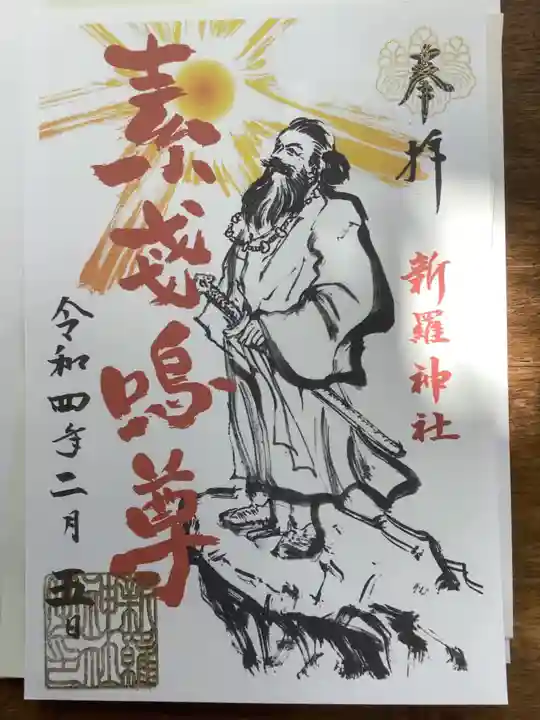 奉拝
新羅神社
素戔嗚尊
令和四年二月五日
新羅
神社